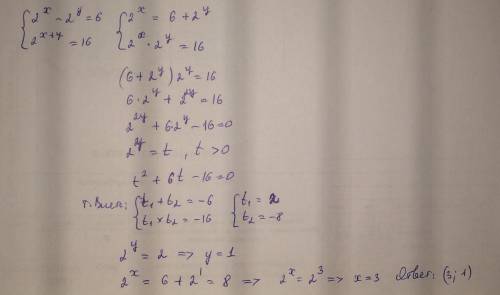 {2ˣ − 2ʸ = 6 {2ˣ = 6 + 2ʸ
{2ˣ⁺ʸ = 16 {2ˣ · 2ʸ = 16
(6 + 2ʸ) 2ʸ = 16
6 · 2ʸ + 2²ʸ = 16
2²ʸ + 6 · 2ʸ − 16 = 0
2ʸ = t , t > 0
t² + 6t − 16 = 0
т. Виета: {t₁ + t₂ = −6 {t₁ = 2
{t₁ × t₂ = −16 {t₂ = −8
2ʸ = 2 => y = 1
2ˣ = 6 + 2¹ = 8 => 2ˣ = 2³ => x = 3 Ответ: (3; 1)